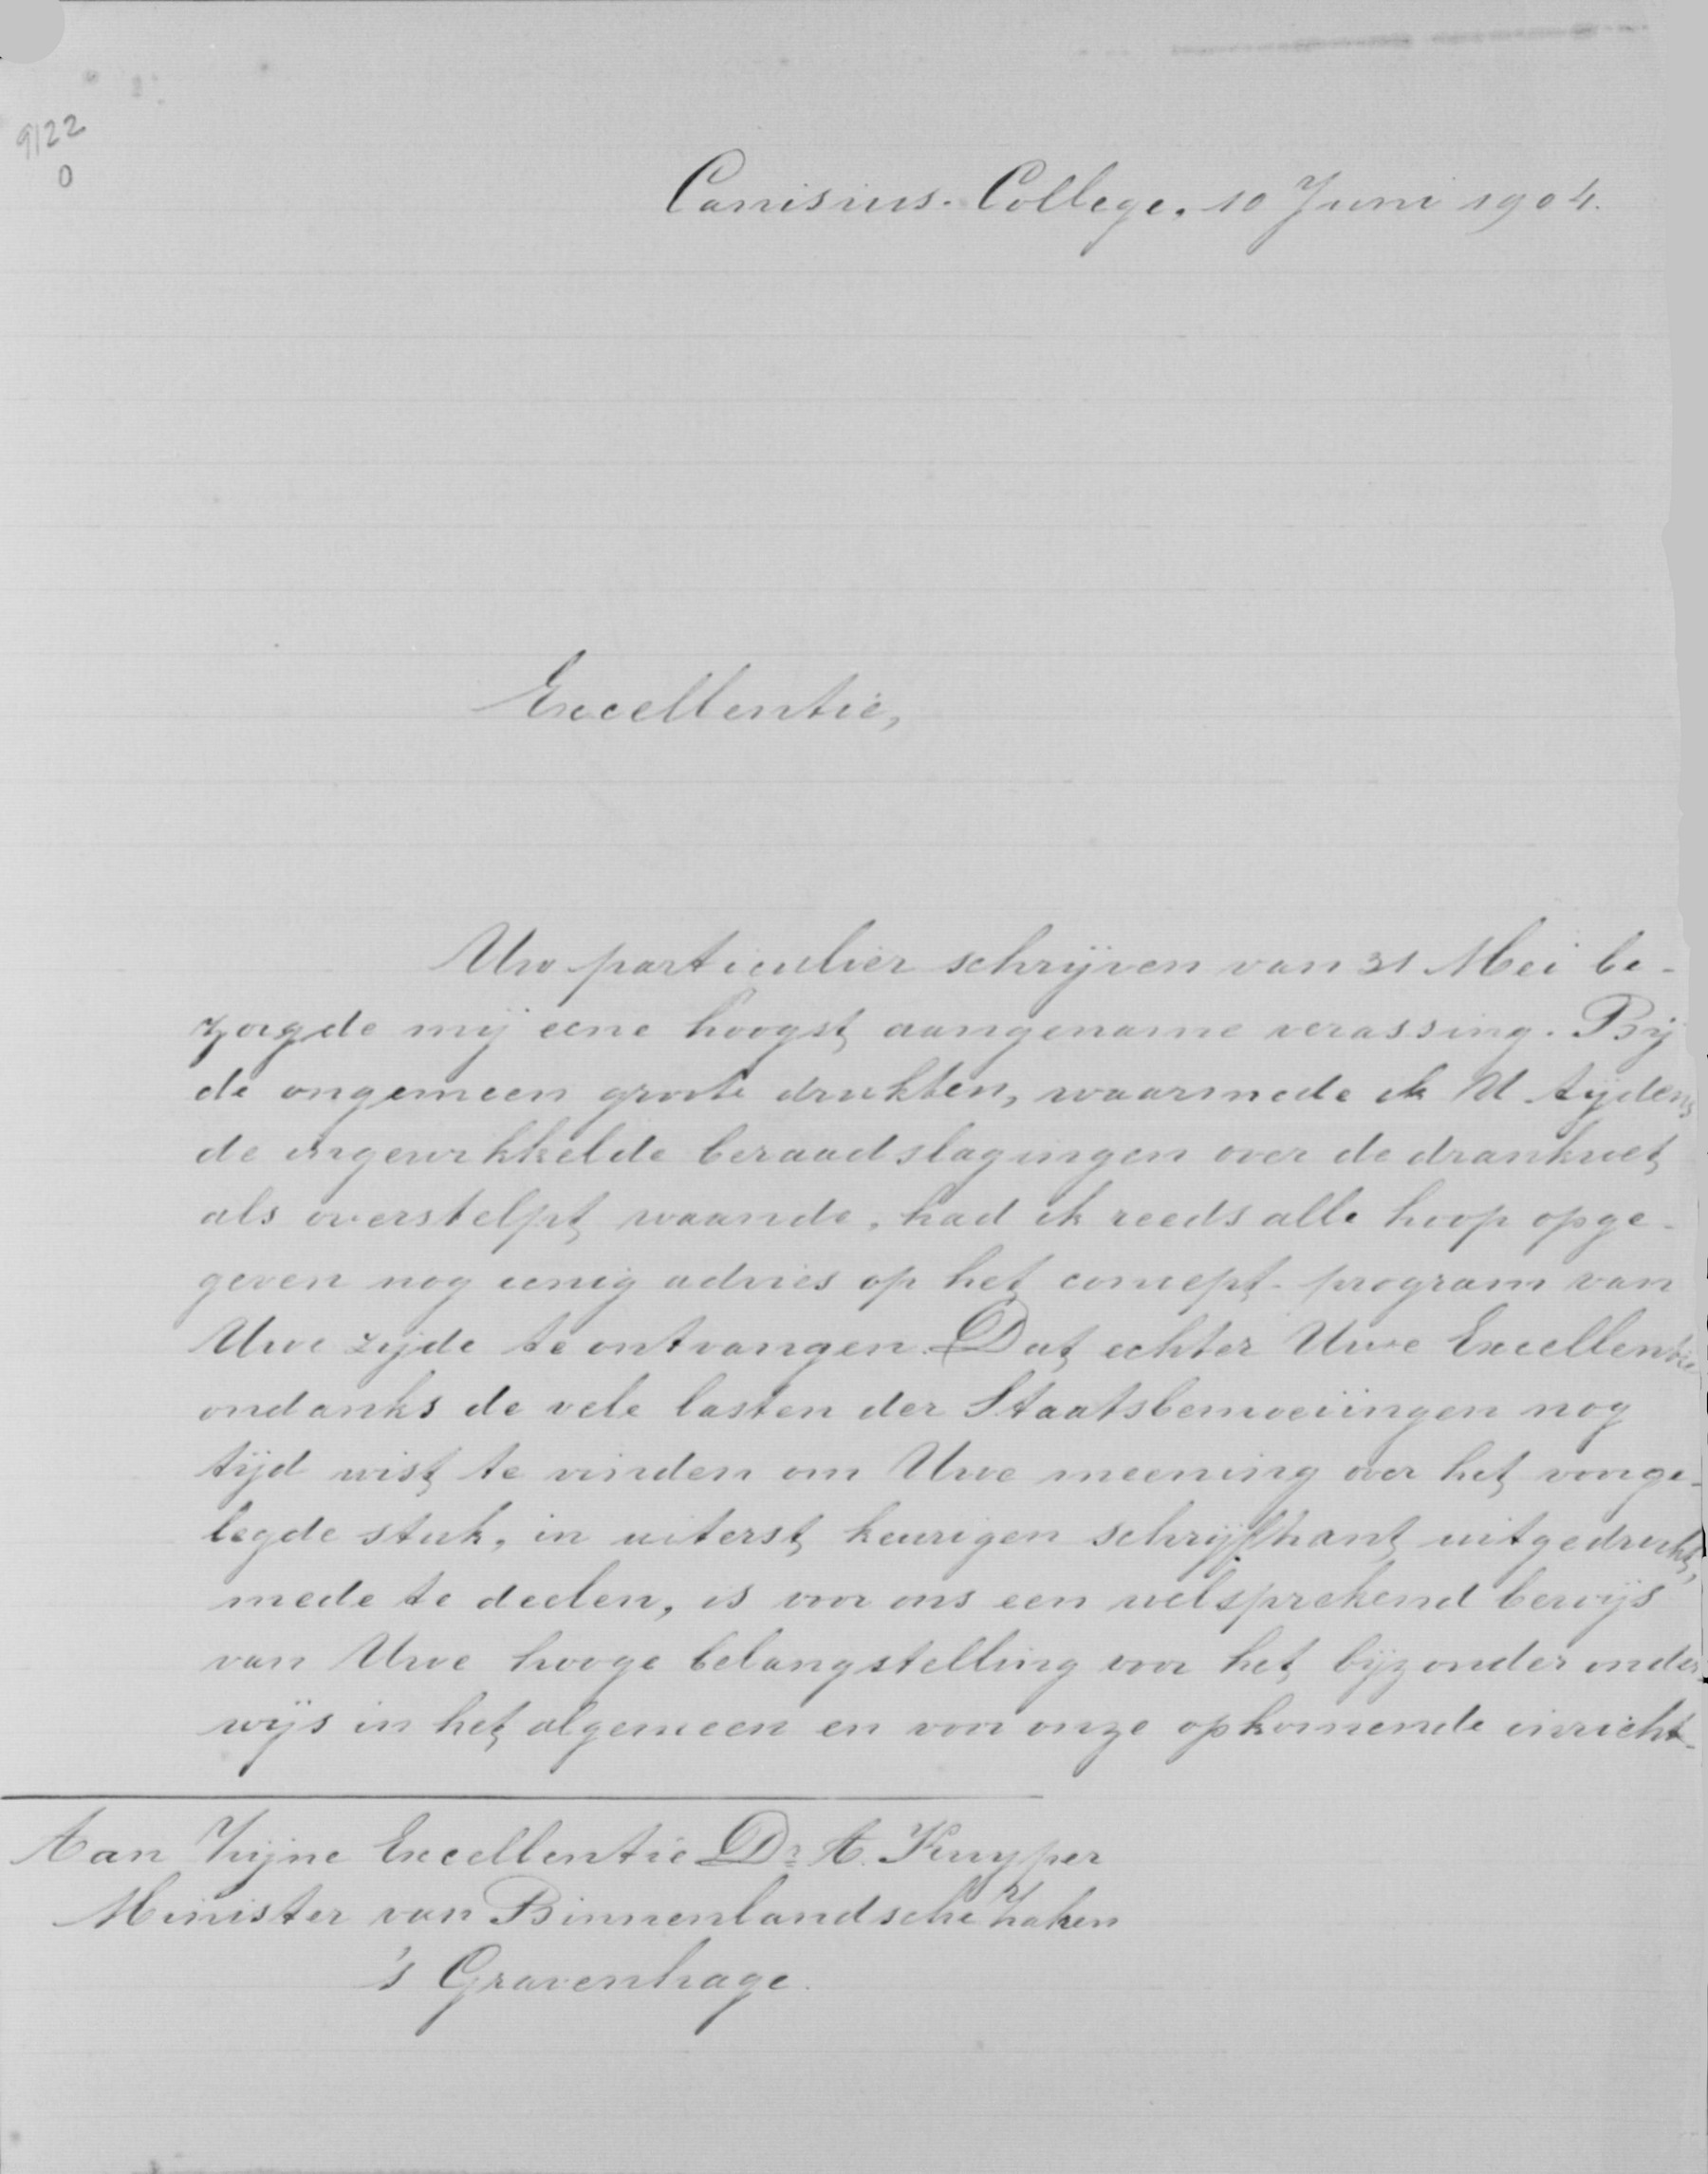 9122
0
Canisius-College, 10 Juni 1904.
Excellentie,
Uw particulier schrijven van 31 Mei be-
zorgde mij eene hoogst aangename verassing. Bij
de ongemeen groote drukten, waarmede ik U tijdens
de ingewikkelde beraadslagingen over de drankwet
als overstelpt waande, had ik reeds alle hoop opge-
geven nog eenig advies op het concept-program van
Uwe zijde te ontvangen. Dat echter Uwe Excellentie
ondanks de vele lasten der Staatsbemoeiingen nog
tijd wist te vinden om Uwe meening over het voorge-
legde stuk, in uiterst keurigen schrijfhant uitgedrukt,
mede te deelen, is voor ons een welsprekend bewijs
van Uwe hooge belangstelling voor het bijzonder onder-
wijs in het algemeen en voor onze opkomende inricht-
Aan Zijne Excellentie Dr A. Kuyper
Minister van Binnenlandsche Zaken
's Gravenhage.